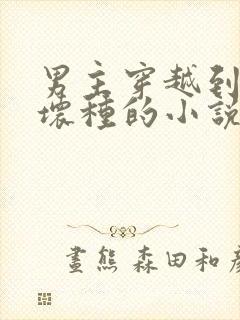 男主穿越到
壞種的小說
畫熊 森田和彥